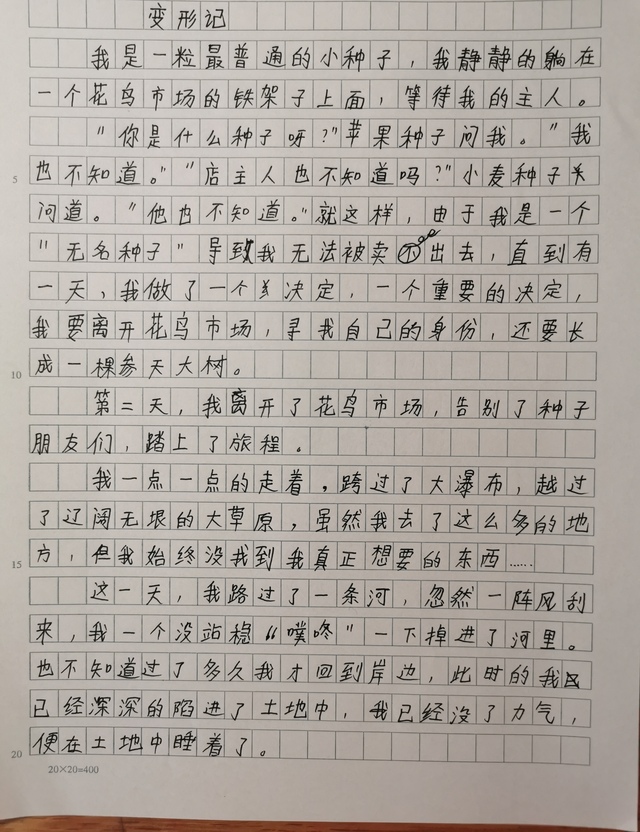 变形记
我是一粒最普通的小种子，我静静的躺在
一个花鸟市场的铁架子上面，等待我的主人。
“你是什么种子呀？”苹果种子问我。“我
5 也不知道。”“店主人也不知道吗？”小麦种子关
问道。“他也不知道。”就这样，由于我是一个
“无名种子”导致我无法被卖不出去，直到有
一天，我做了一个决定，一个重要的决定，
我要离开花鸟市场，寻我自己的身份，还要长
10 成一棵参天大树。
第二天，我离开了花鸟市场，告别了种子
朋友们，踏上了旅程。
我一点一点的走着，跨过了大瀑布，越过
了辽阔无垠的大草原，虽然我去了这么多的地
15 方，但我始终没找到我真正想要的东西……
这一天，我路过了一条河，忽然一阵风刮
来，我一个没站稳“噗咚”一下掉进了河里。
也不知道过了多久我才回到岸边，此时的我
已经深深的陷进了土地中，我已经没了力气，
20 便在土地中睡着了。
20×20=400